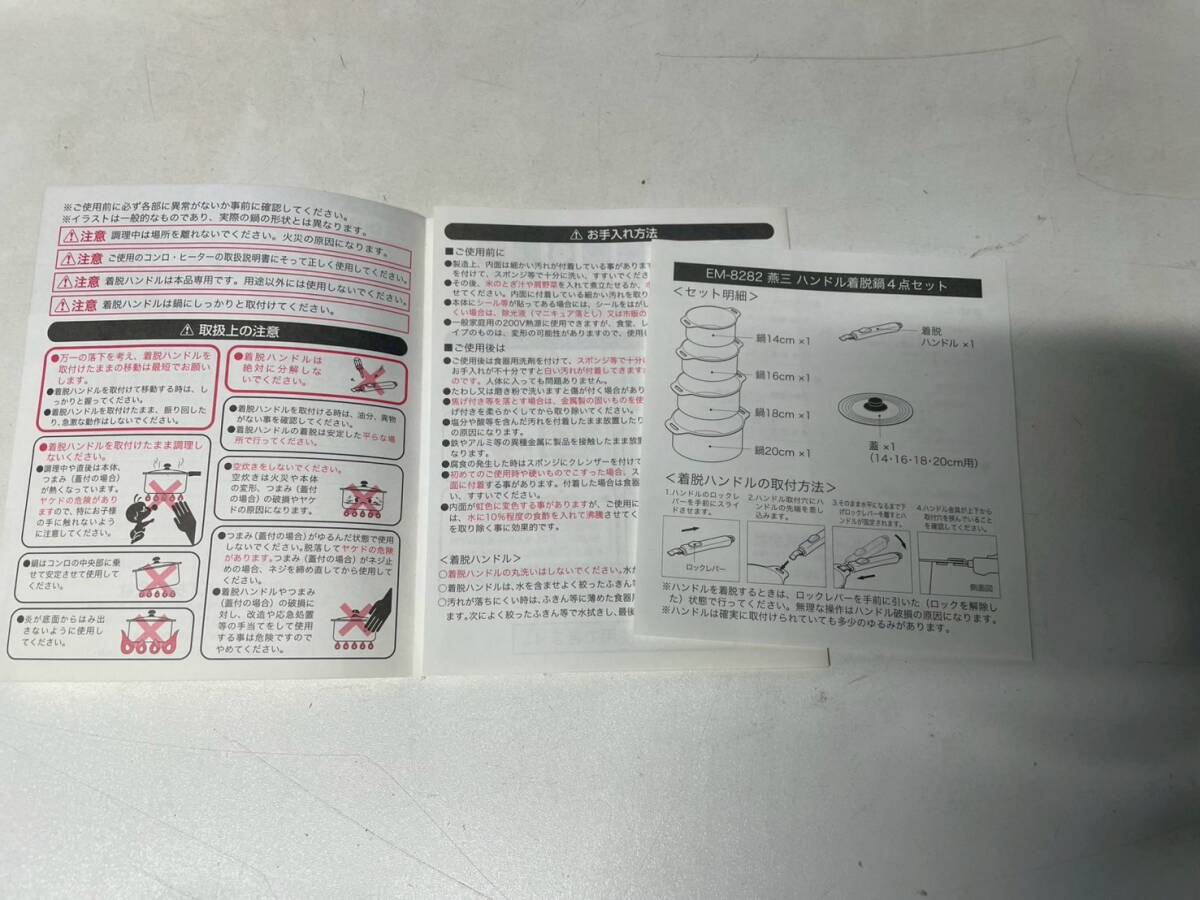 ※ご使用前に必ず各部に異常がないか事前に確認してください。
※イラストは一般的なものであり、実際の鍋の形状とは異なります。
⚠注意 調理中は場所を離れないでください。火災の原因になります。
⚠注意 ご使用のコンロ・ヒーターの取扱説明書にそって正しく使用してください。
⚠注意 着脱ハンドルは本品専用です。用途以外には使用しないでください。
⚠注意 着脱ハンドルは鍋にしっかりと取付けてください。
⚠ 取扱上の注意
●万一の落下を考え、着脱ハンドルを
取付けたままの移動は最短でお願い
します。
●着脱ハンドルを取付けて移動する時は、し
っかりと握ってください。
●着脱ハンドルを取付けたまま、振り回した
り、急激な動作はしないでください。
●着脱ハンドルは
絶対に分解しな
いでください。
●着脱ハンドルを取付ける時は、油分、異物
がない事を確認してください。
●着脱ハンドルの着脱は安定した平らな場
所で行ってください。
●着脱ハンドルを取付けたまま調理し
ないください。
●調理中や直後は本体、
つまみ(蓋付の場合)
が熱くなっています。
ヤケドの危険があり
ますので、特にお子様
の手に触れないよう
に注意してください。
●空炊きをしないでください。
空炊きは火災や本体
の変形、つまみ(蓋付
の場合)の破損やヤケ
ドの原因になります。
●鍋はコンロの中央部に乗
せて安定させて使用して
ください。
●炎が底面からはみ出
さないように使用し
てください。
●つまみ(蓋付の場合)がゆるんだ状態で使用
しないでください。脱落してヤケドの危険
があります。つまみ(蓋付の場合)がネジ止
めの場合、ネジを締め直してから使用して
ください。
●着脱ハンドルやつまみ
(蓋付の場合)の破損に
対し、改造や応急処置
等の手当てをして使用
する事は危険ですので
やめてください。
⚠ お手入れ方法
■ご使用前に
●製造上、内面は細かい汚れが付着している事がありま
を付けて、スポンジ等で十分に洗い、すすいでくださ
●その後、米のとぎ汁や屑野菜を入れて煮立たせるか、
せてください。内面に付着している細かい汚れを取り
●本体にシール等が貼ってある場合には、シールをはがし
くい場合は、除光液(マニキュア落とし)又は市販の
●一般家庭用の200V熱源に使用できますが、食堂、レ
イプのものは、変形の可能性がありますので、使用し
■ご使用後は
●ご使用後は食器用洗剤を付けて、スポンジ等で十分に
お手入れが不十分ですと白い汚れが付着してきますが
のです。人体に入っても問題ありません。
●たわし又は磨き粉で洗いますと傷が付く場合があり
●焦げ付き等を落とす場合は、金属製の固いものを使
げ付きを柔らかくしてから取り除いてください。
●塩分や酸等を含んだ汚れを付着したまま放置したり
の原因になります。
●鉄やアルミ等の異種金属に製品を接触したまま放置
なります。
●腐食の発生した時はスポンジにクレンザーを付けて
●初めてのご使用時や硬いものでこすった場合、ス
面に付着する事があります。付着した場合は食器
い、すすいでください。
●内面が虹色に変色する事がありますが、ご使用に
は、水に10%程度の食酢を入れて沸騰させてく
を取り除く事に効果的です。
<着脱ハンドル>
○着脱ハンドルの丸洗いはしないでください。水が
○着脱ハンドルは、水を含ませよく絞ったふきん等
○汚れが落ちにくい時は、ふきん等に薄めた食器用
ます。次によく絞ったふきん等で水拭きし、最後
EM-8282 燕三 ハンドル着脱鍋4点セット
<セット明細>
鍋14cm ×1
鍋16cm ×1
鍋18cm ×1
鍋20cm ×1
着脱
ハンドル ×1
蓋 ×1
(14・16・18・20cm用)
<着脱ハンドルの取付方法>
1.ハンドルのロックレ
バーを手前にスライ
ドさせます。
2.ハンドル取付穴にハ
ンドルの先端を差し
込みます。
3.そのまま水平になるまで下
げロックレバーを離すとハ
ンドルが固定されます。
4.ハンドル金具が上下から
取付穴を挟んでいること
を確認してください。
ロックレバー
側面図
※ハンドルを着脱するときは、ロックレバーを手前に引いた(ロックを解除し
た)状態で行ってください。無理な操作はハンドル破損の原因になります。
※ハンドルは確実に取付けられていても多少のゆるみがあります。